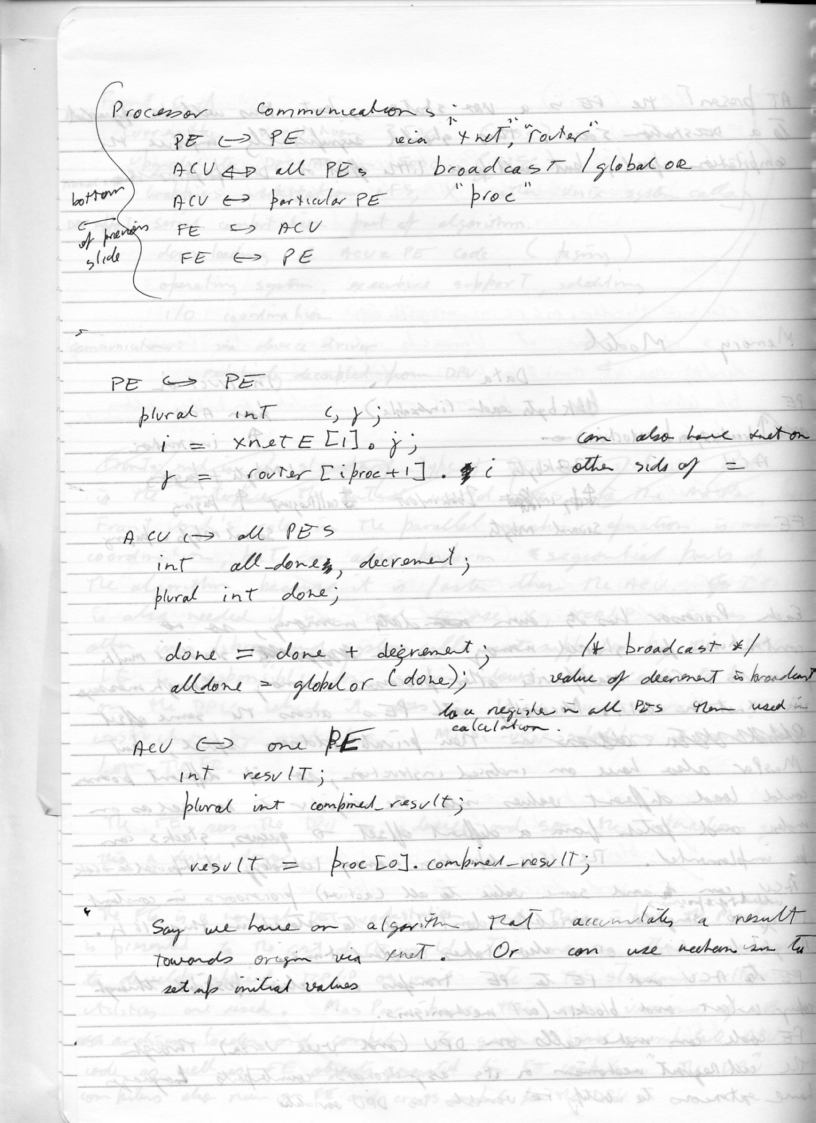 Processor communications:
PE ↔ PE via "xnet", "router"
ACU ↔ all PEs broadcast / global OR
ACU ↔ particular PE "proc"
FE ↔ ACU
FE ↔ PE
bottom
of previous
slide
PE ↔ PE
plural int i, j;
i = xnetE [1]. j; can also have xnet on
j = router [iproc+1]. i other side of =
ACU ↔ all PES
int all_done, decrement;
plural int done;
done = done + decrement; /* broadcast */
alldone = globalor (done); value of decrement is broadcast
to a register in all PEs then used in
calculation.
ACU ↔ one PE
int result;
plural int combined_result;
result = proc [0]. combined_result;
Say we have an algorithm that accumulates a result
towards origin via xnet. Or can use mechanism to
set up initial values